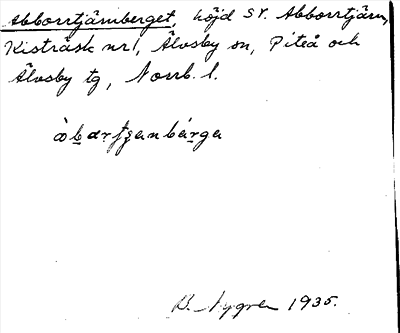 Abborrtjärnberget, höjd SV. Abborrtjärn,
Kisträsk nr 1, Älvsby sn, Piteå och
Älvsby tg, Norrb. l.
àbarʈʂanbárga
B. Nygren 1935.